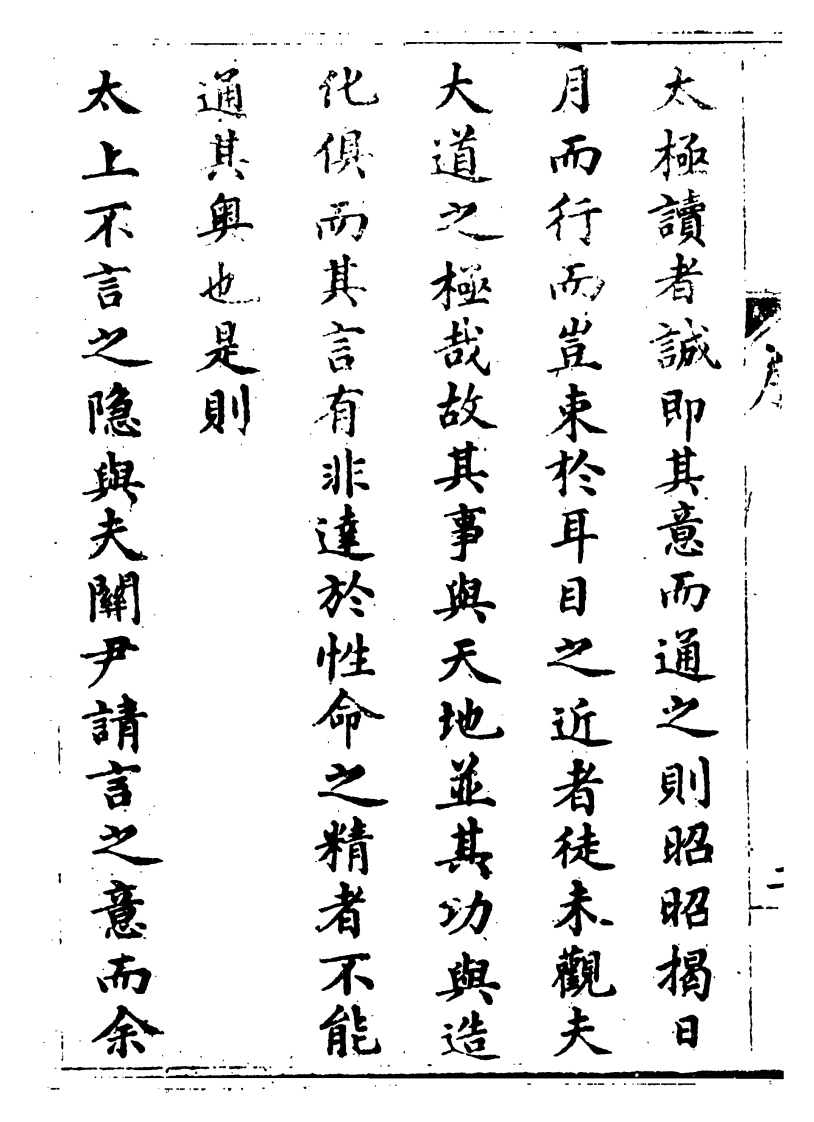 太極讀者誠即其意而通之則昭昭揭日
月而行而豈束於耳目之近者徒未觀夫
大道之極哉故其事與天地並其功與造
化俱而其言有非達於性命之精者不能
通其奧也是則
太上不言之隐與夫關尹請言之意而余
序
二